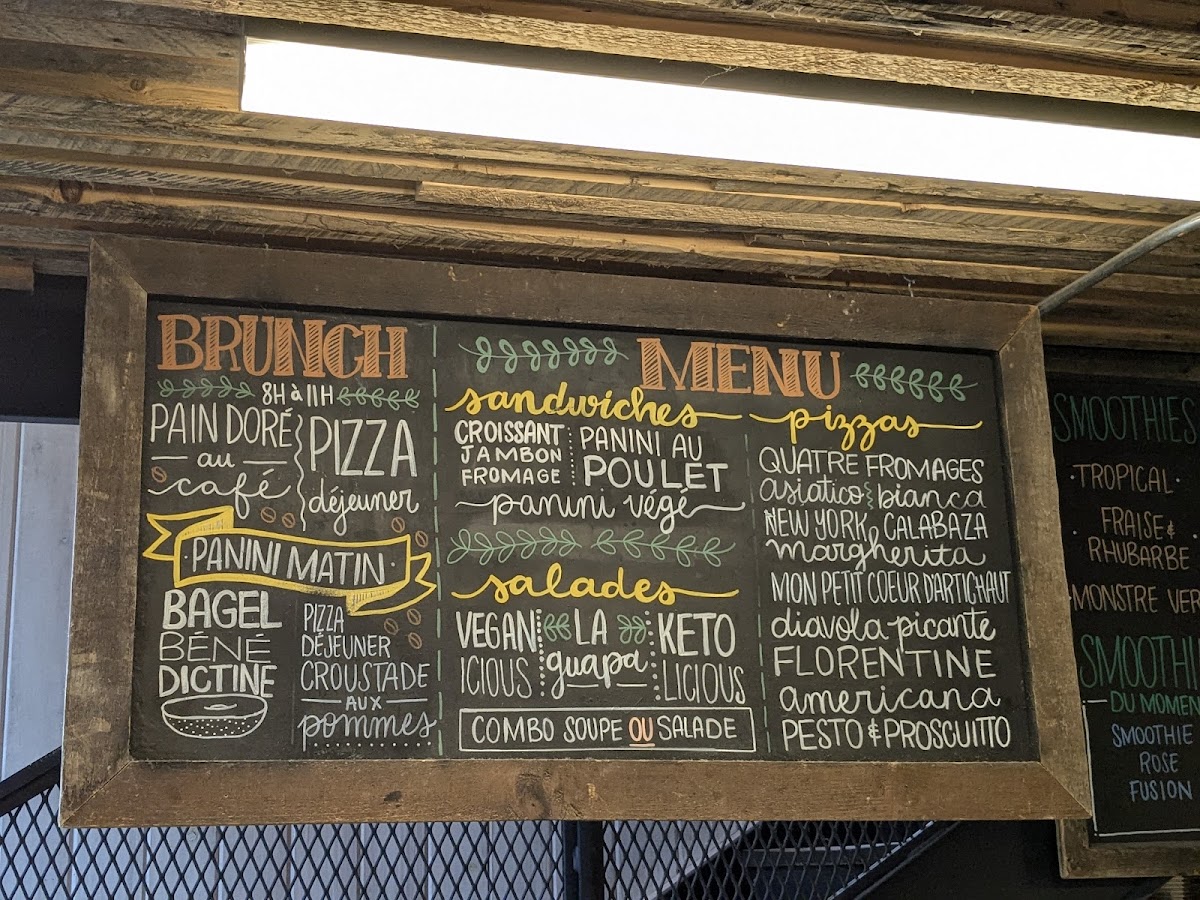 BRUNCH
8H à 11H
PAIN DORÉ
au
café
PIZZA
déjeuner
PANINI MATIN
BAGEL
BÉNÉ
DICTINE
PIZZA
DÉJEUNER
CROUSTADE
AUX
pommes
MENU
sandwiches
CROISSANT
JAMBON
FROMAGE
PANINI AU
POULET
panini végé
salades
VEGAN
ICIOUS
LA
guapa
KETO
LICIOUS
COMBO SOUPE OU SALADE
pizzas
QUATRE FROMAGES
asiatico & bianca
NEW YORK, CALABAZA
margherita
MON PETIT COEUR D'ARTICHAUT
diavola picante
FLORENTINE
americana
PESTO & PROSCUITTO
SMOOTHIES
· TROPICAL ·
FRAISE &
RHUBARBE
·MONSTRE VER
SMOOTHI
DU MOMEN
SMOOTHIE
ROSE
FUSION